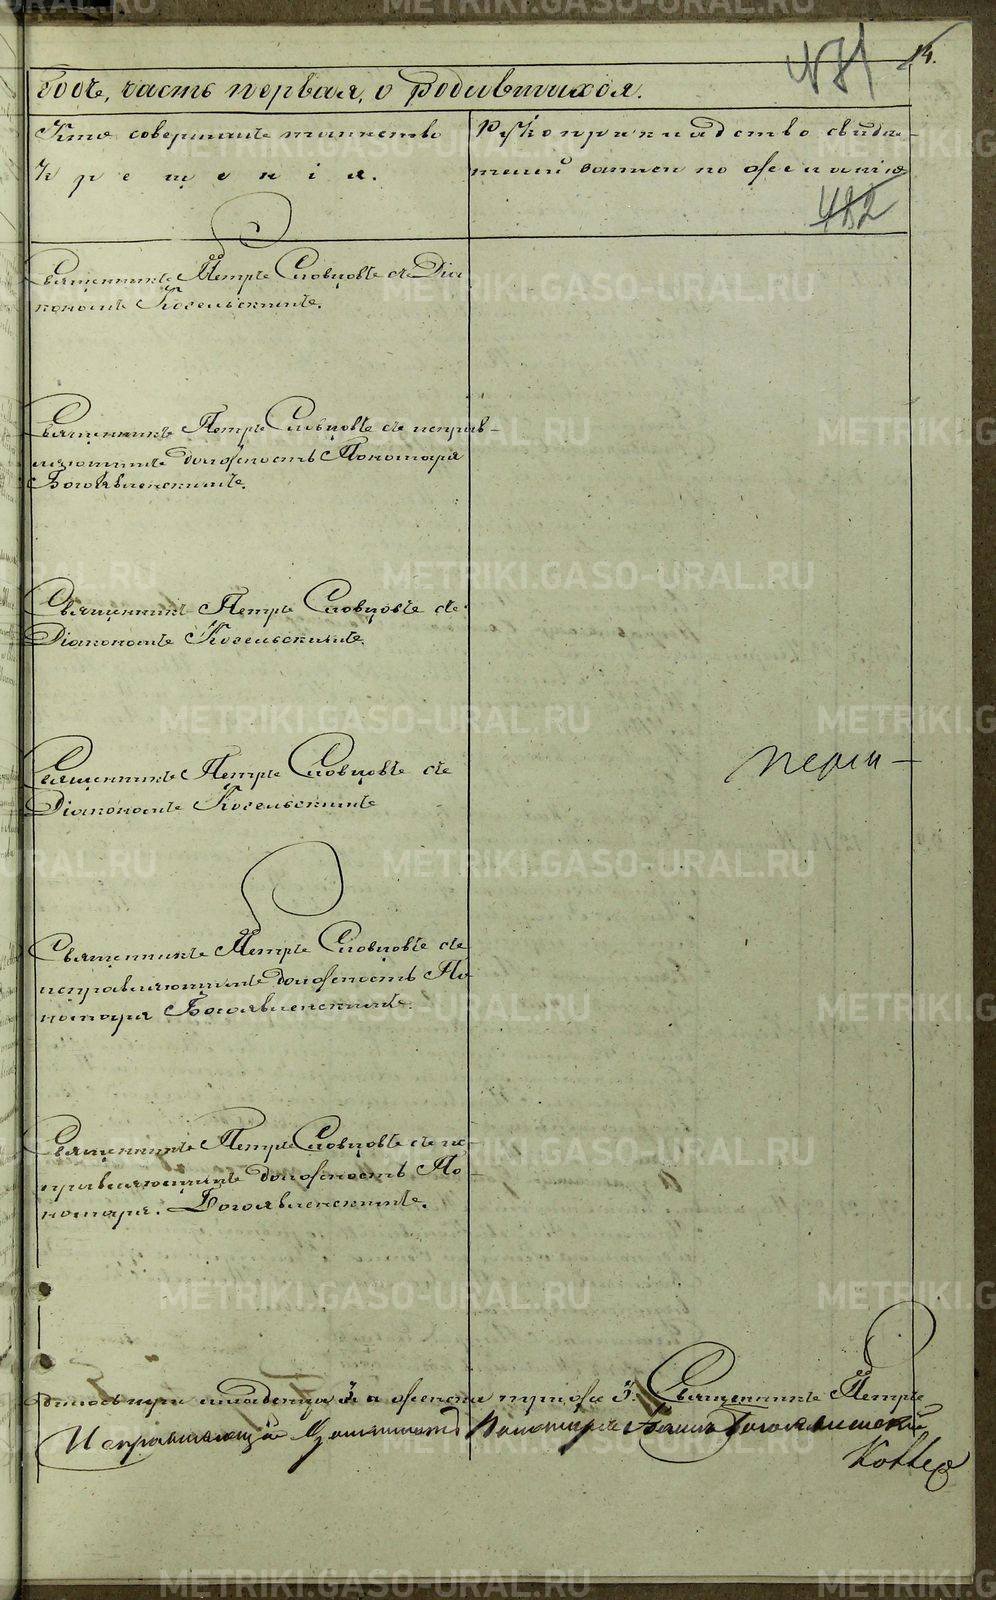 481
14.
годъ, часть первая, о родившихся.
Кто совершалъ таинство
Крещенія.
Рукоприкладство свидѣ-
телей записи по желанію
482
Священникъ Петръ Словцовъ съ Діа
кономъ Косельскимъ.
Священникъ Петръ Словцовъ съ исправ-
ляющимъ должность Пономаря
Богоявленскимъ.
Священникъ Петръ Словцовъ съ
Діакономъ Косельскимъ.
Священникъ Петръ Словцовъ съ
Діакономъ Косельскимъ
Священникъ Петръ Словцовъ съ
исправляющимъ должность По
номаря Богоявленскимъ.
Священникъ Петръ Словцовъ съ ис-
правляющимъ должность По
номаря. Богоявленскимъ.
младенца 3 а женска тожъ 3. Священникъ Петръ
Исправляющій Должность Пономаря Богоявленский
METRIKI.GASO-URAL.RU